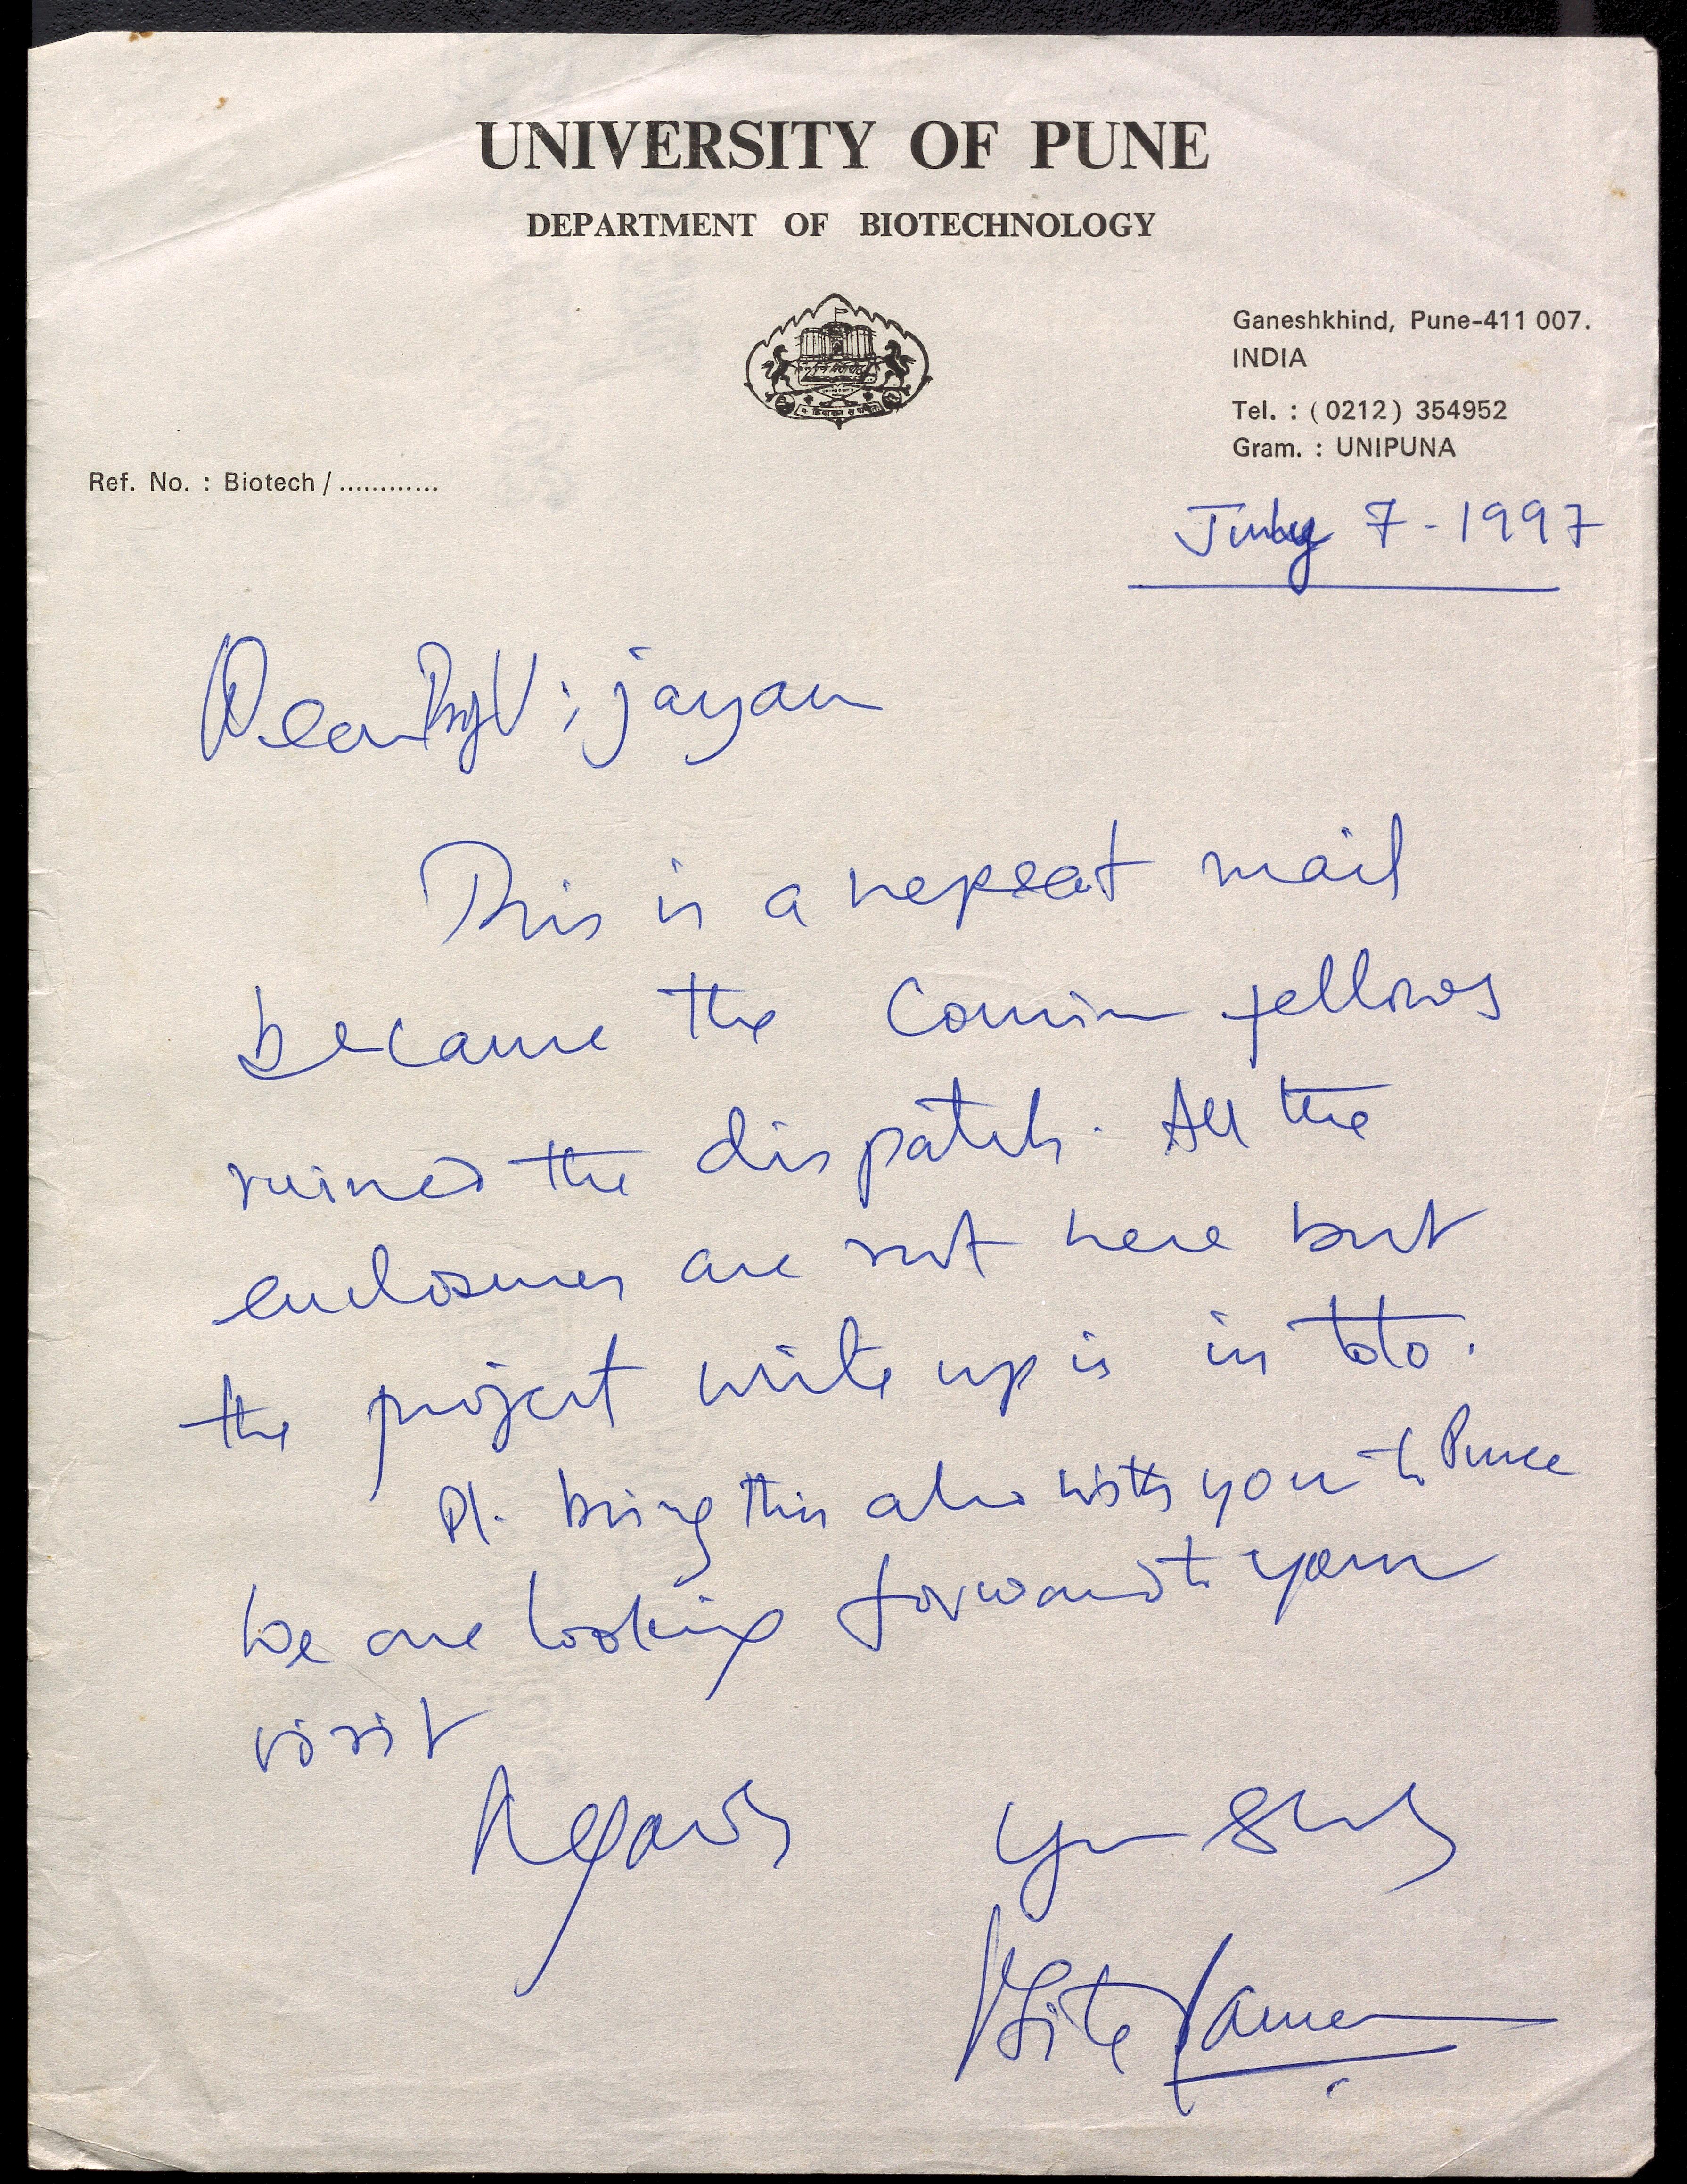 UNIVERSITY OF PUNE
DEPARTMENT OF BIOTECHNOLOGY
Ganeshkhind, Pune-411 007.
INDIA
Tel. : (0212) 354952
Gram. : UNIPUNA
Ref. No. : Biotech / ............
July 7 - 1997
Dear Vijayan
This is a repeat mail
because the Courier fellows
ruined the dispatch. All the
enclosures are not here but
the project write up is in toto.
Pl. bring this also with you to Pune
We are looking forward to your
visit
Regards